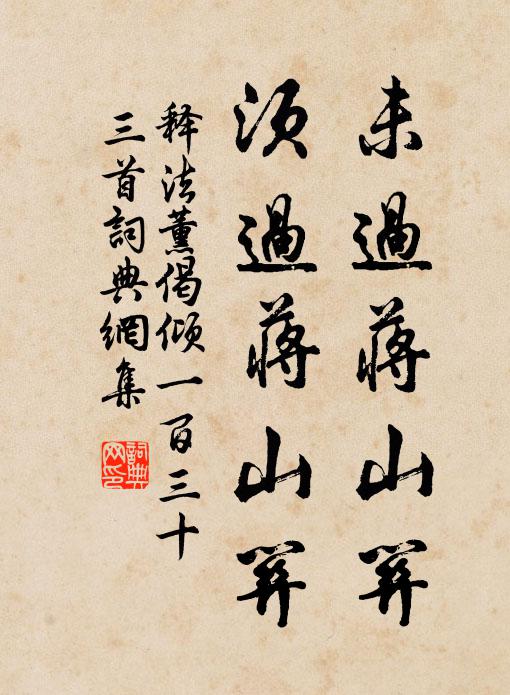 未過蔣山關
須過蔣山關
释法薰偈倾一百三十
三首詞典網集
詞典网印